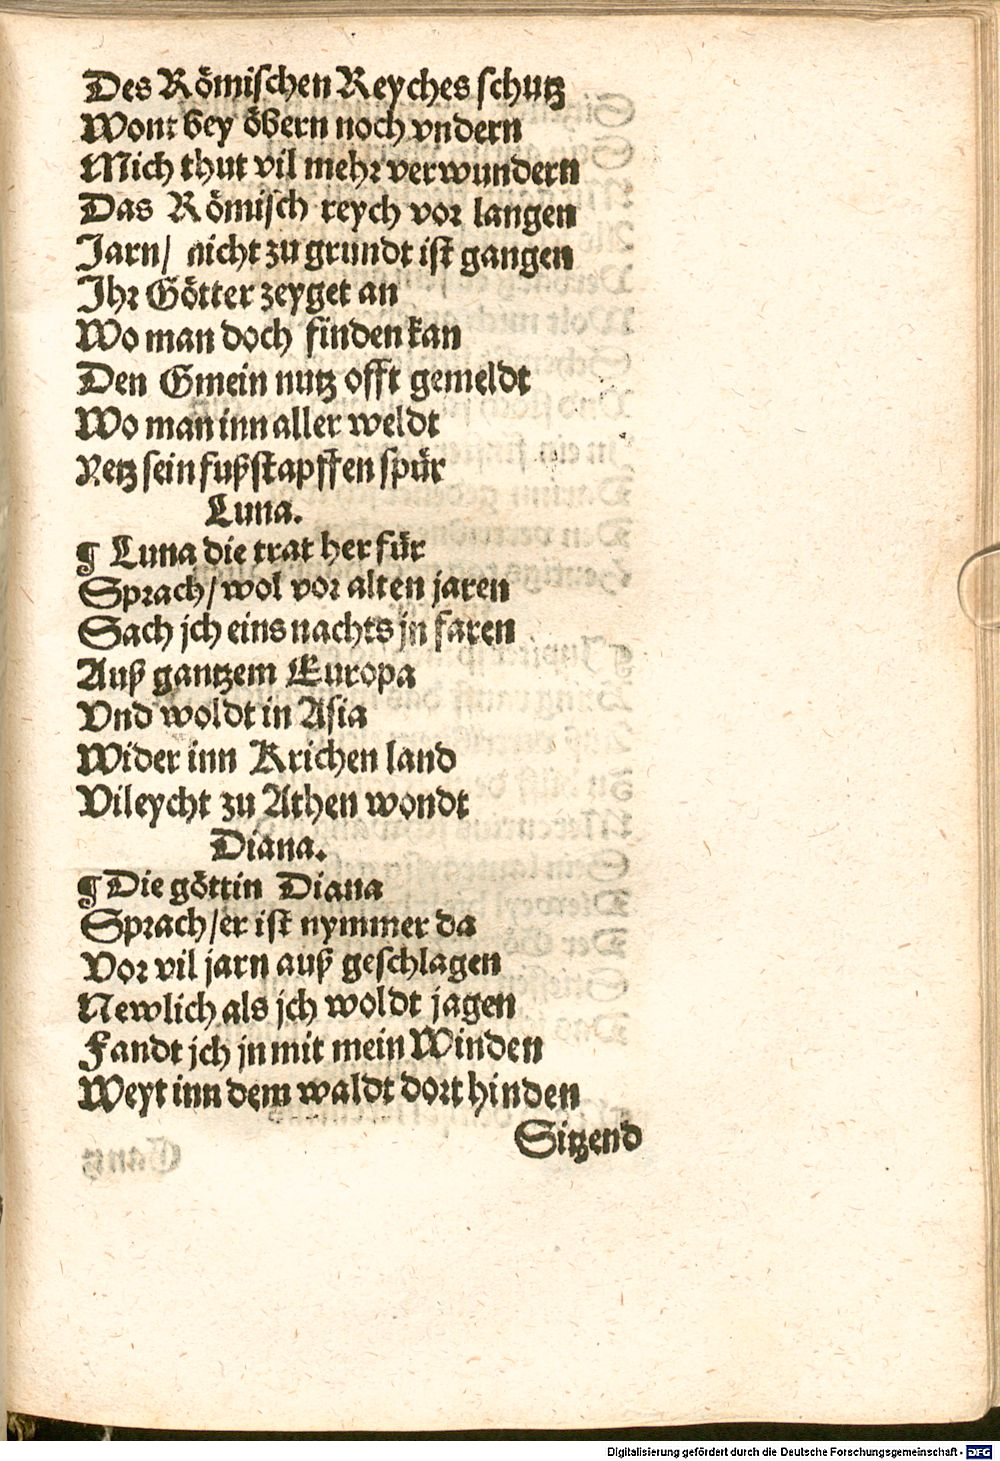 Des Römischen Reyches schutz
Wont bey öbern noch vndern
Mich thut vil mehr verwundern
Das Römisch reych vor langen
Jarn/ nicht zu grundt ist gangen
Jhr Götter zeyget an
Wo man doch finden kan
Den Gmein nutz offt gemeldt
Wo man inn aller weldt
Yetz sein fußstapffen spür
Luna.
¶ Luna die trat her für
Sprach/ wol vor alten jaren
Sach jch eins nachts jn faren
Auß gantzem Europa
Vnd woldt in Asia
Wider inn Krichen land
Vileycht zu Athen wondt
Diana.
¶ Die göttin Diana
Sprach/ er ist nymmer da
Vor vil jarn auß geschlagen
Newlich als jch woldt jagen
Fandt jch jn mit mein Winden
Weyt inn dem waldt dort hinden
Sitzend
Digitalisierung gefördert durch die Deutsche Forschungsgemeinschaft - DFG